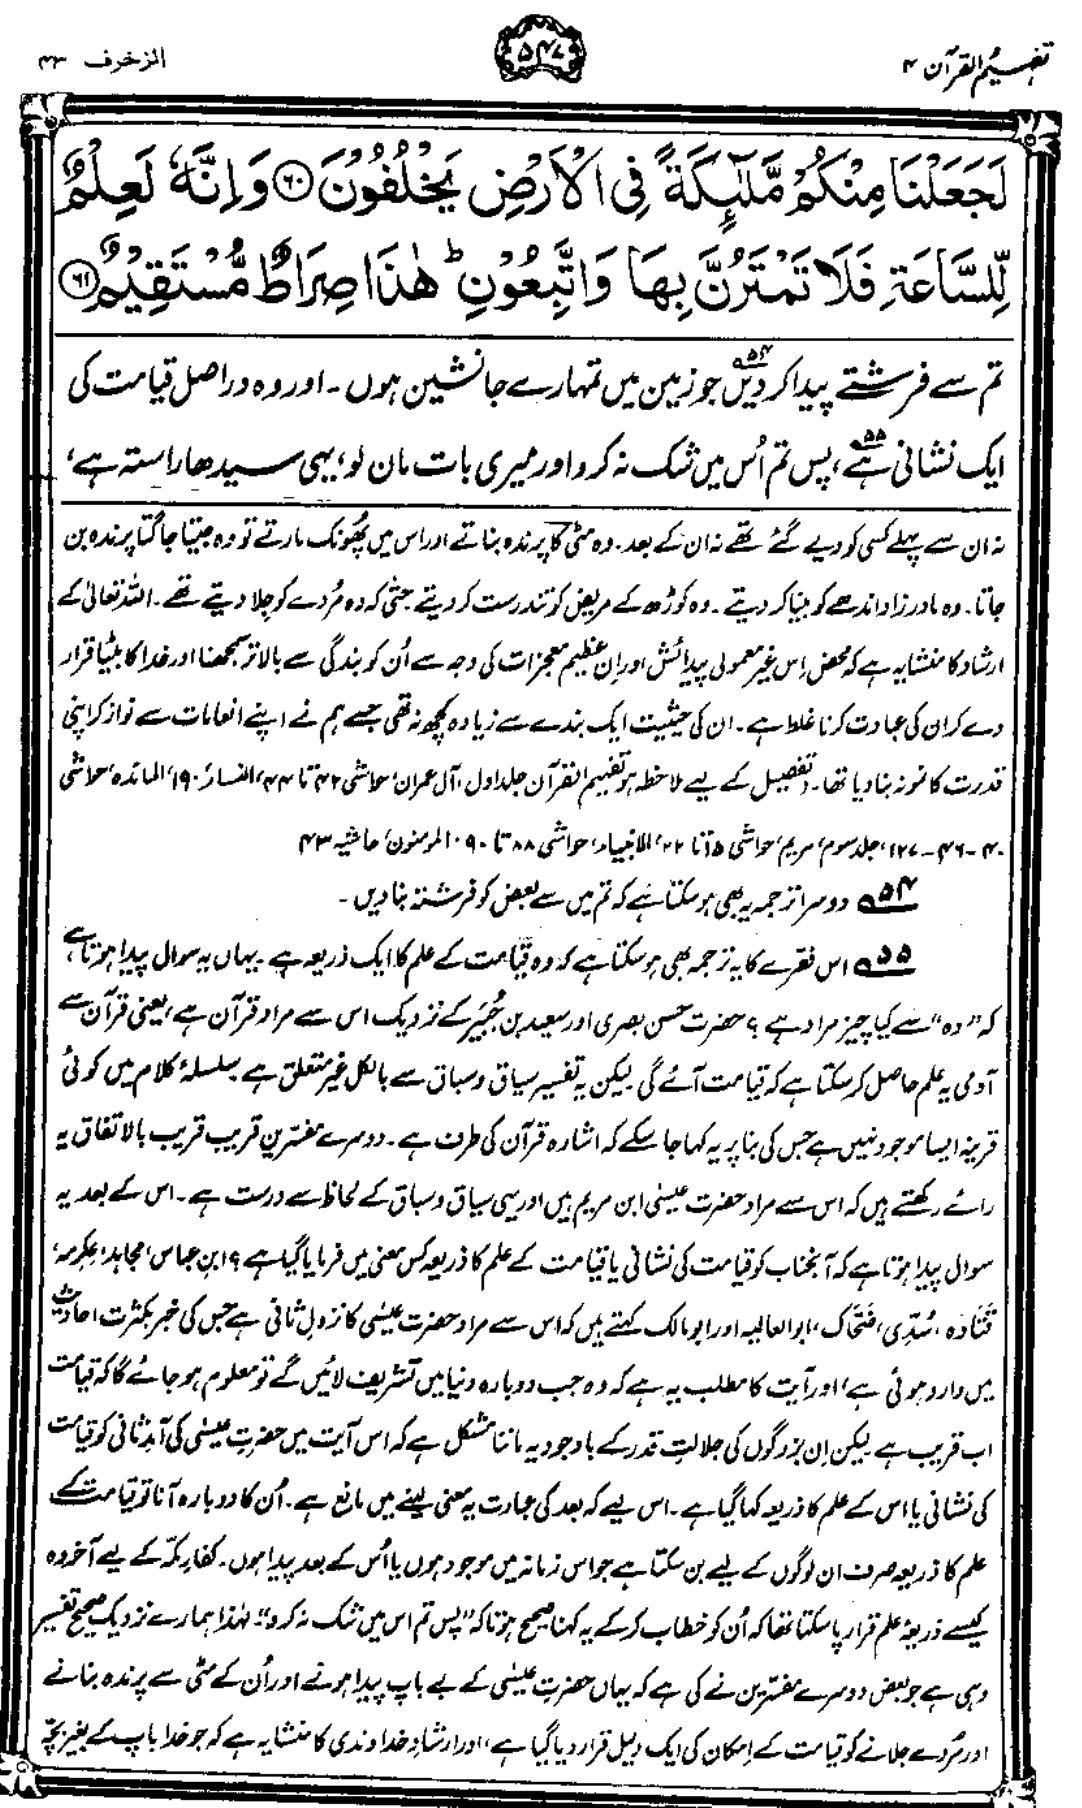 تفہیم القرآن ۴
۵۴۷
الزخرف ۴۳
لَجَعَلْنَا مِنْكُمْ مَّلٰٓئِكَةً فِی الْاَرْضِ یَخْلُفُوْنَ ﴿۶۰﴾ وَاِنَّهٗ لَعِلْمٌ
لِّلسَّاعَةِ فَلَا تَمْتَرُنَّ بِهَا وَاتَّبِعُوْنِ ؕ هٰذَا صِرَاطٌ مُّسْتَقِیْمٌ ﴿۶۱﴾
تم سے فرشتے پیدا کر دیں ۵۴ جو زمین میں تمہارے جانشین ہوں۔ اور وہ دراصل قیامت کی
ایک نشانی ہے ۵۵، پس تم اُس میں شک نہ کرو اور میری بات مان لو، یہی سیدھا راستہ ہے،
نہ ان سے پہلے کسی کو دیے گئے تھے نہ ان کے بعد۔ وہ مٹی کا پرندہ بناتے اور اس میں پھُونک مارتے تو وہ جیتا جاگتا پرندہ بن
جاتا۔ وہ مادرزاد اندھے کو بینا کر دیتے۔ وہ کوڑھ کے مریض کو تندرست کر دیتے حتیٰ کہ وہ مُردے کو جِلا دیتے تھے۔ اللہ تعالیٰ کے
ارشاد کا منشا یہ ہے کہ محض اِس غیر معمولی پیدائش اور اِن عظیم معجزات کی وجہ سے اُن کو بندگی سے بالاتر سمجھنا اور خدا کا بیٹا قرار
دے کر ان کی عبادت کرنا غلط ہے۔ ان کی حیثیت ایک بندے سے زیادہ کچھ نہ تھی جسے ہم نے اپنے انعامات سے نواز کر اپنی
قدرت کا نمونہ بنا دیا تھا۔ (تفصیل کے لیے ملاحظہ ہو تفہیم القرآن جلد اول، آل عمران، حواشی ۴۲ تا ۴۴، النساء، ۱۹۰، المائدہ، حواشی
۴۰-۴۶-۱۲۷، جلد سوم، مریم، حواشی ۱۵ تا ۲۲، الانبیاء، حواشی ۸۸ تا ۹۰، المومنون، حاشیہ ۴۳
۵۴ دوسرا ترجمہ یہ بھی ہو سکتا ہے کہ تم میں سے بعض کو فرشتہ بنا دیں۔
۵۵ اس فقرے کا یہ ترجمہ بھی ہو سکتا ہے کہ وہ قیامت کے علم کا ایک ذریعہ ہے۔ یہاں یہ سوال پیدا ہوتا ہے
کہ ”وہ“ سے کیا چیز مراد ہے؟ حضرت حسن بصری اور سعید بن جُبَیر کے نزدیک اس سے مراد قرآن ہے، یعنی قرآن سے
آدمی یہ علم حاصل کر سکتا ہے کہ قیامت آئے گی۔ لیکن یہ تفسیر سیاق و سباق سے بالکل غیر متعلق ہے۔ سلسلۂ کلام میں کوئی
قرینہ ایسا موجود نہیں ہے جس کی بنا پر یہ کہا جا سکے کہ اشارہ قرآن کی طرف ہے۔ دوسرے مفسّرین قریب قریب بالاتفاق یہ
رائے رکھتے ہیں کہ اس سے مراد حضرت عیسیٰ ابن مریم ہیں اور یہی سیاق و سباق کے لحاظ سے درست ہے۔ اس کے بعد یہ
سوال پیدا ہوتا ہے کہ آنجناب کو قیامت کی نشانی یا قیامت کے علم کا ذریعہ کس معنی میں فرمایا گیا ہے؟ ابن عباس، مجاہد، عِکرمہ،
قَتَادہ، سُدّی، ضَحّاک، ابوالعالیہ اور ابو مالک کہتے ہیں کہ اس سے مراد حضرت عیسیٰ کا نزولِ ثانی ہے جس کی خبر بکثرت احادیث
میں وارد ہوئی ہے، اور آیت کا مطلب یہ ہے کہ وہ جب دوبارہ دنیا میں تشریف لائیں گے تو معلوم ہو جائے گا کہ قیامت
اب قریب ہے۔ لیکن اِن بزرگوں کی جلالتِ قدر کے باوجود یہ ماننا مشکل ہے کہ اس آیت میں حضرت عیسیٰ کی آمدِ ثانی کو قیامت
کی نشانی یا اس کے علم کا ذریعہ کہا گیا ہے۔ اس لیے کہ بعد کی عبارت یہ معنی لینے میں مانع ہے۔ اُن کا دوبارہ آنا تو قیامت کے
علم کا ذریعہ صرف ان لوگوں کے لیے بن سکتا ہے جو اس زمانہ میں موجود ہوں یا اُس کے بعد پیدا ہوں۔ کفارِ مکّہ کے لیے آخر وہ
کیسے ذریعۂ علم قرار پا سکتا تھا کہ اُن کو خطاب کر کے یہ کہنا صحیح ہوتا کہ ”پس تم اس میں شک نہ کرو“؟ لہٰذا ہمارے نزدیک صحیح تفسیر
وہی ہے جو بعض دوسرے مفسّرین نے کی ہے کہ یہاں حضرت عیسیٰ کے بے باپ پیدا ہونے اور اُن کے مٹی سے پرندہ بنانے
اور مُردے جِلانے کو قیامت کے اِمکان کی ایک دلیل قرار دیا گیا ہے، اور ارشادِ خداوندی کا منشا یہ ہے کہ جو خدا باپ کے بغیر بچّہ